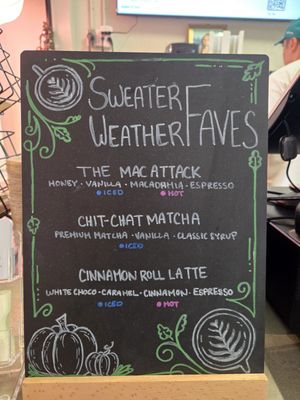 SWEATER
WEATHER FAVES
THE MAC ATTACK
HONEY · VANILLA · MACADAMIA · ESPRESSO
ICED HOT
CHIT-CHAT MATCHA
PREMIUM MATCHA · VANILLA · CLASSIC SYRUP
ICED
CINNAMON ROLL LATTE
WHITE CHOCO · CARAMEL · CINNAMON · ESPRESSO
ICED HOT